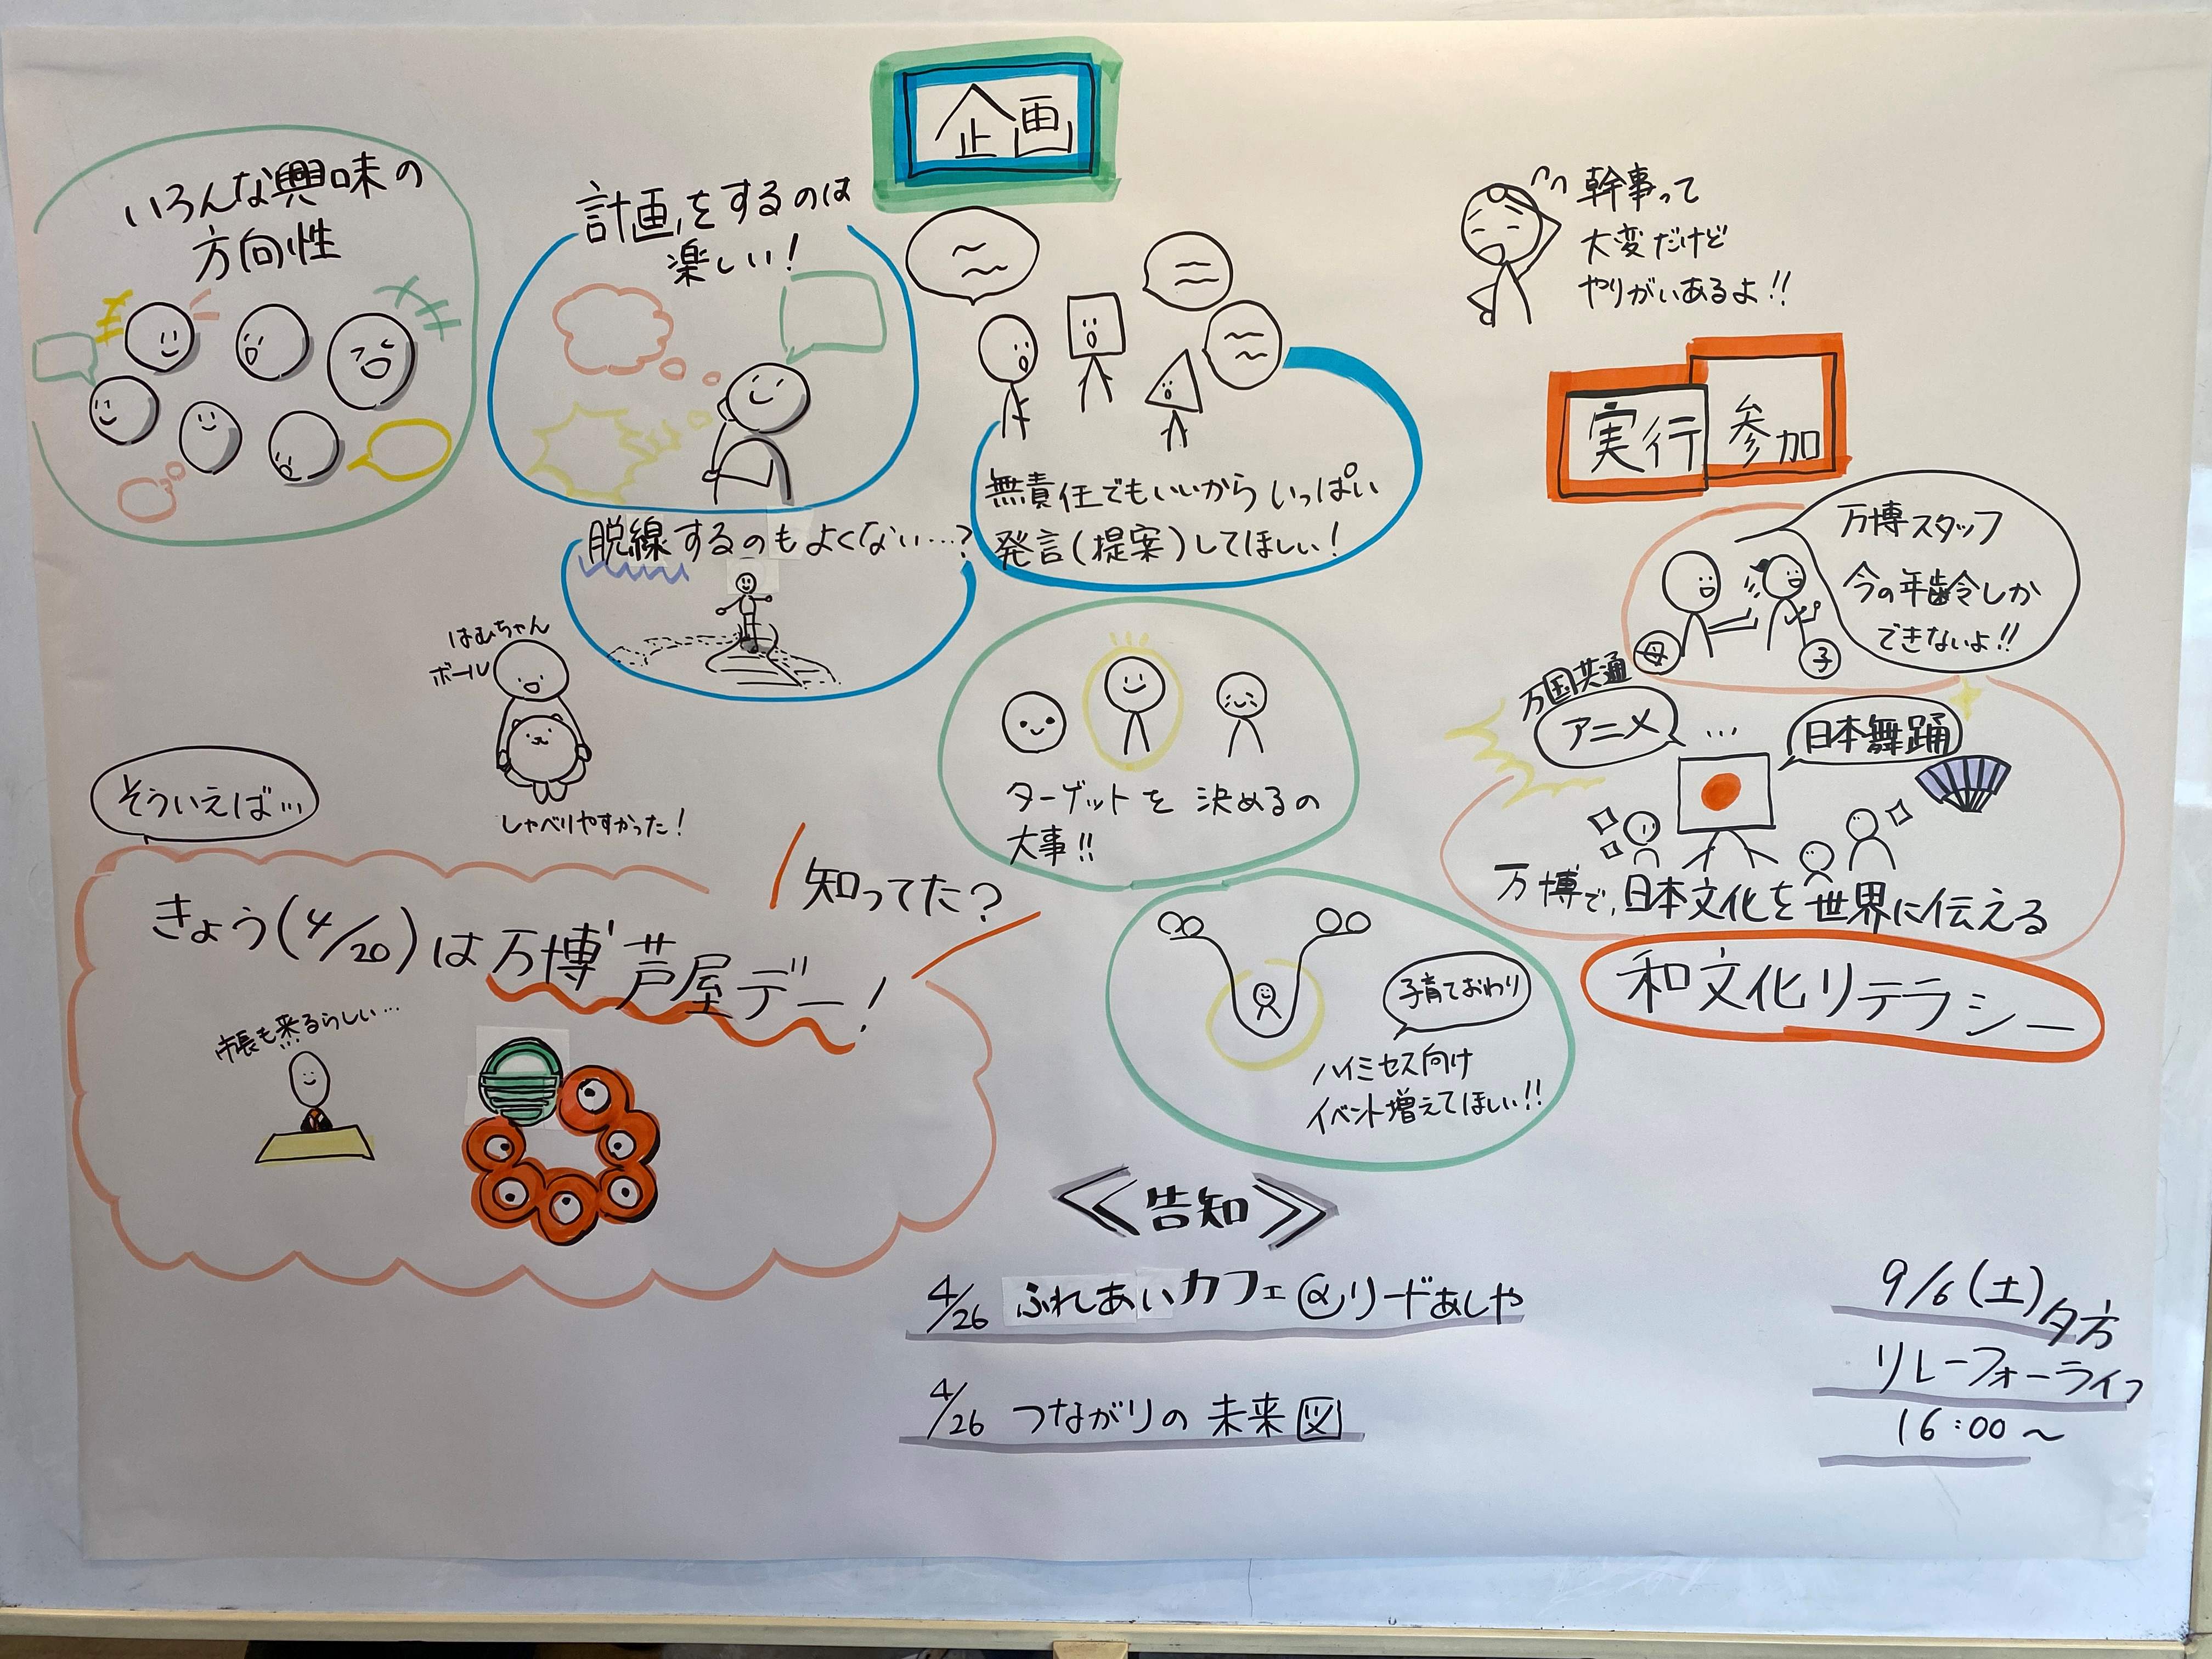 企画
いろんな興味の
方向性
計画をするのは
楽しい!
無責任でもいいからいっぱい
発言(提案)してほしい!
脱線するのもよくない…?
はむちゃん
ボール
しゃべりやすかった!
ターゲットを決めるの
大事!!
子育ておわり
ハイミセス向け
イベント増えてほしい!!
幹事って
大変だけど
やりがいあるよ!!
実行 参加
万博スタッフ
今の年齢しか
できないよ!!
母
子
万国共通
アニメ
…
日本舞踊
万博で,日本文化を世界に伝える
和文化リテラシー
そういえば…
知ってた?
きょう(4/20)は万博芦屋デー!
市長も来るらしい…
≪告知≫
4/26 ふれあいカフェ@リードあしや
4/26 つながりの未来図
9/6(土)夕方
リレーフォーライフ
16:00~